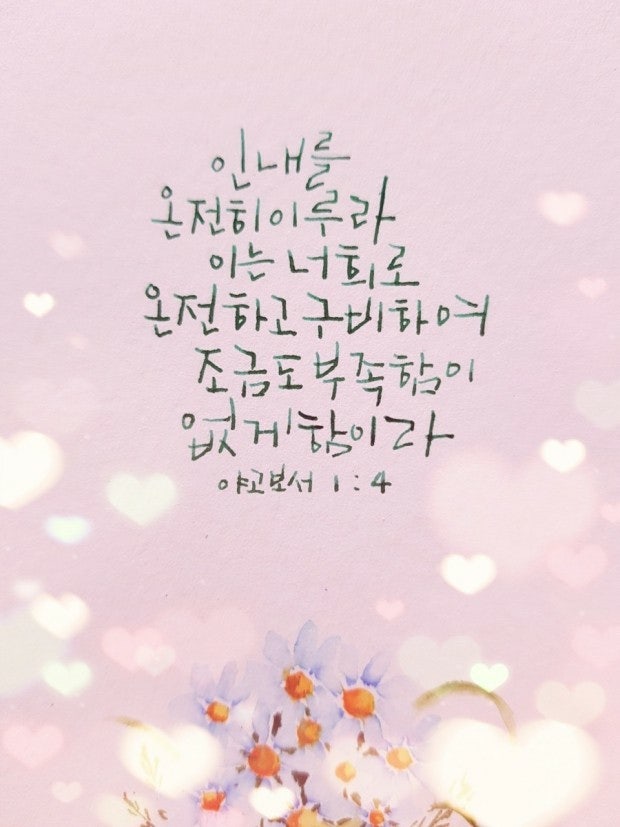 인내를
온전히 이루라
이는 너희로
온전하고 구비하여
조금도 부족함이
없게 함이라
야고보서 1:4